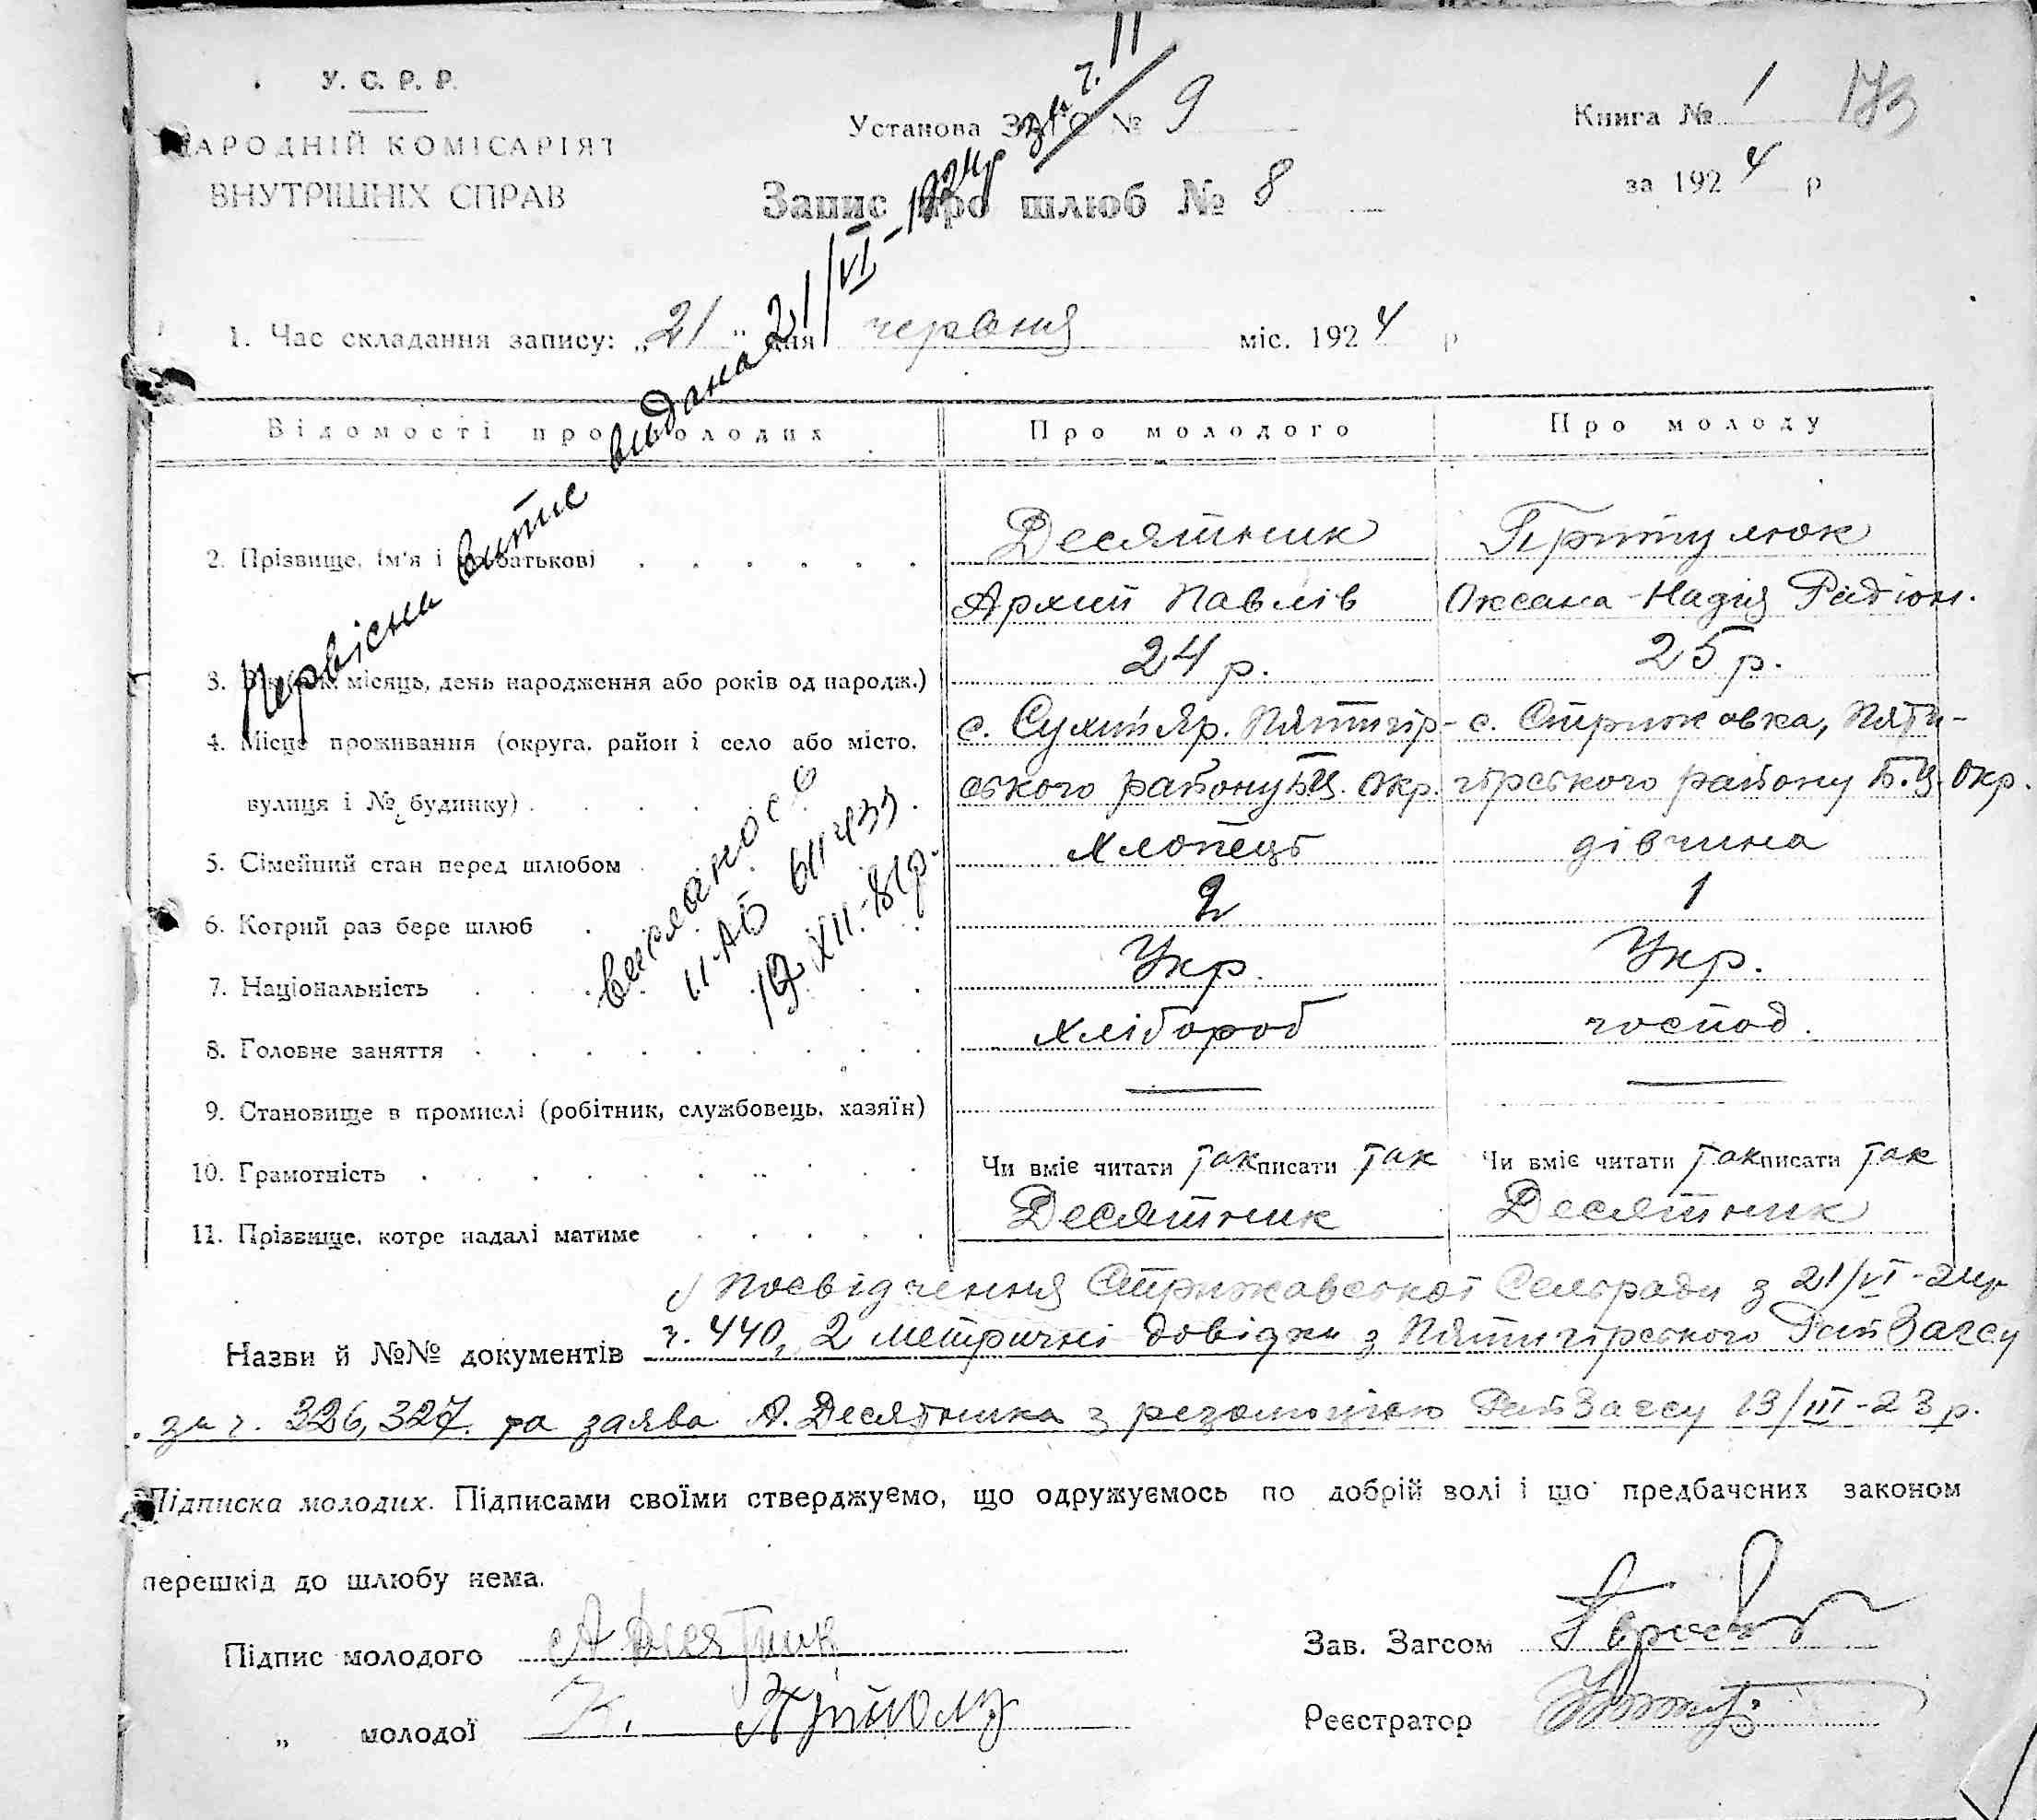 У. С. Р. Р.
НАРОДНІЙ КОМІСАРІЯТ
ВНУТРІШНІХ СПРАВ
Установа ЗАГС № 9
Книга № 1
173
за 1924 р
Запис про шлюб № 8
1. Час складання запису: „21" дня червня міс. 1924 р
Первісна випис видана 21/VI-1924р за ч. 11
Відомості про молодих
Про молодого
Про молоду
2. Прізвище, ім'я і по-батькові
Десятник
Притулюк
Архип Павлів
Оксана-Надія Радіон.
3. Вік (рік, місяць, день народження або років од народж.)
24 р.
25 р.
4. Місце проживання (округа, район і село або місто,
вулиця і № будинку)
с. Сухий Яр. Пятигір-
ського району БЦ. Окр.
с. Стрижовка, Пяти-
гірського району Б.Ц. Окр.
5. Сімейний стан перед шлюбом
хлопець
дівчина
6. Котрий раз бере шлюб
2
1
7. Національність
Укр.
Укр.
8. Головне заняття
хлібороб
господ.
9. Становище в промислі (робітник, службовець, хазяїн)
10. Грамотність
Чи вміє читати так писати так
Чи вміє читати так писати так
11. Прізвище, котре надалі матиме
Десятник
Десятник
II-АБ 611433
19 XII-81р.
Назви й №№ документів
Посвідчення Стрижавської Сельради з 21/VI-24р
ч. 440, 2 метричні довідки з Пятигірського РайЗагсу
за ч. 326, 327. та заява А. Десятника з резолюцією РайЗагсу 13/III-23 р.
Підписка молодих. Підписами своїми стверджуємо, що одружуємось по добрій волі і що предбачених законом
перешкід до шлюбу нема.
Підпис молодого А Десятник
Зав. Загсом
„ молодої
Реєстратор